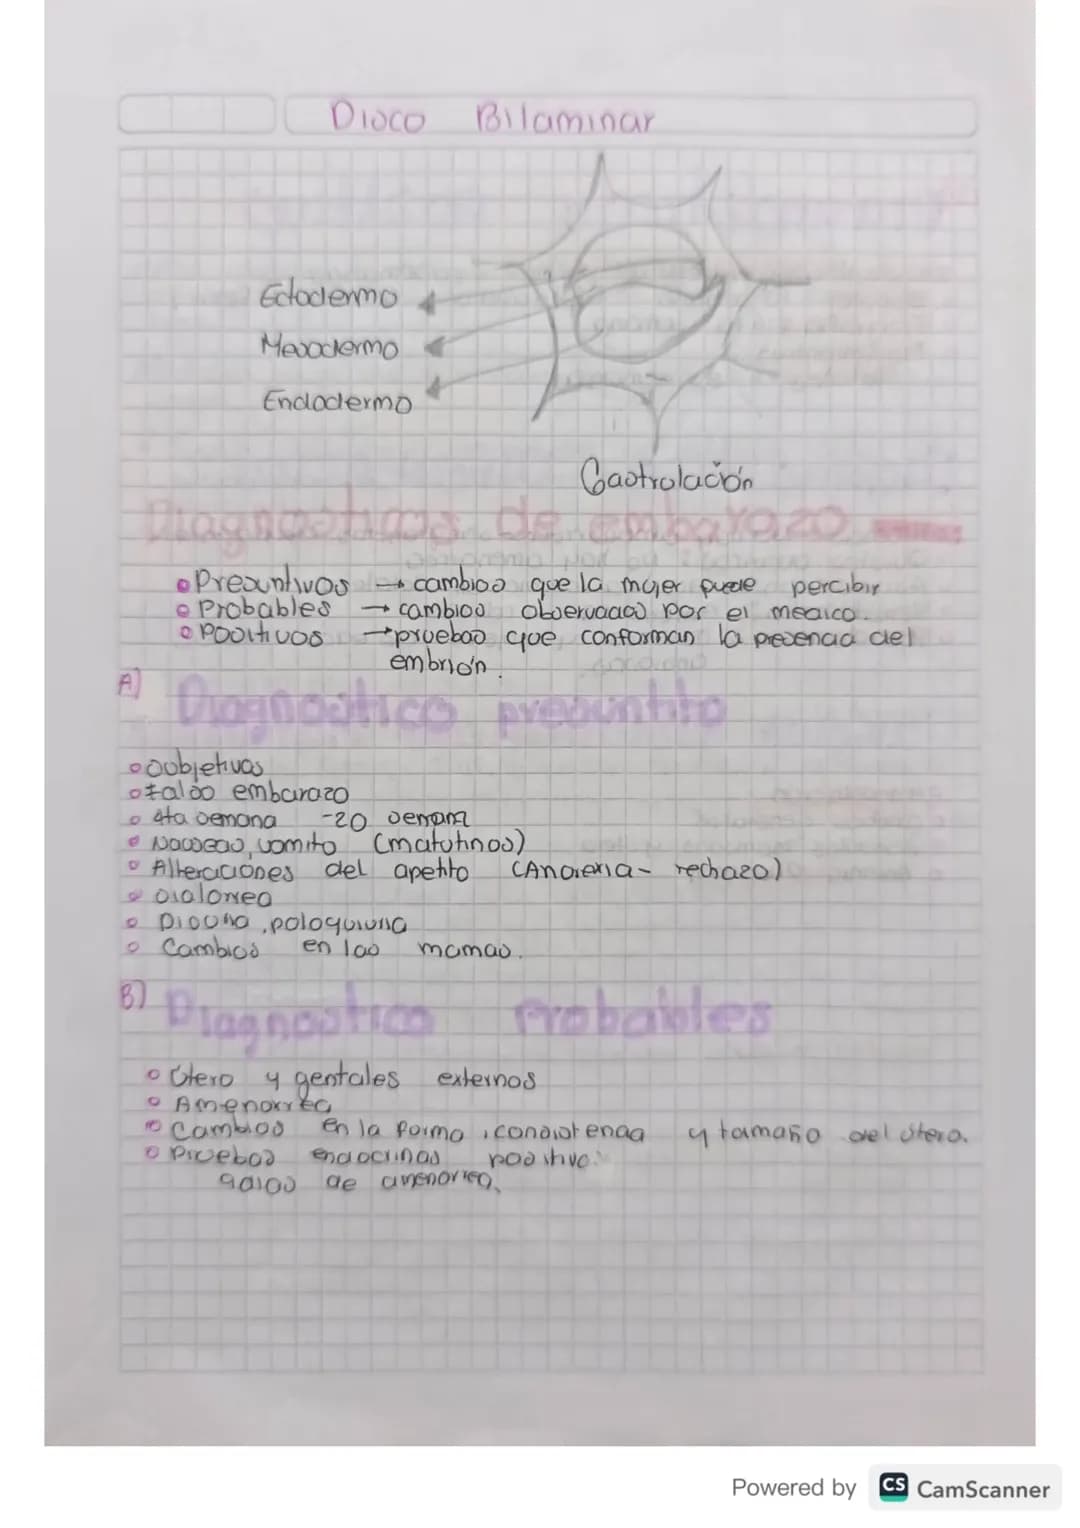 Disco Bilaminar
Ectodermo
Mesodermo
Endodermo
Gastrolación
Diagnosticos de embarazo
Presuntivos → cambios que la mujer puede percibir
Probables → cambios observados por el medico.
Positivos → pruebas que conforman la presencia del
embrión.
A) Diagnostico presuntito
Subjetivos
falso embarazo
4ta semana -20 semana
Nauseas, vomito (matutinos)
Alteraciónes del apetito (Anorexia- rechazo)
sialorrea
Disuria, poloquiuria
Cambios en las mamas.
B) Diagnostico Probables
Utero y gentales externos
Amenorrea
Cambios en la forma, consistencia y tamaño del útero.
Pruebas endocrinas positivo.
de amenorrea.
Powered by CS CamScanner